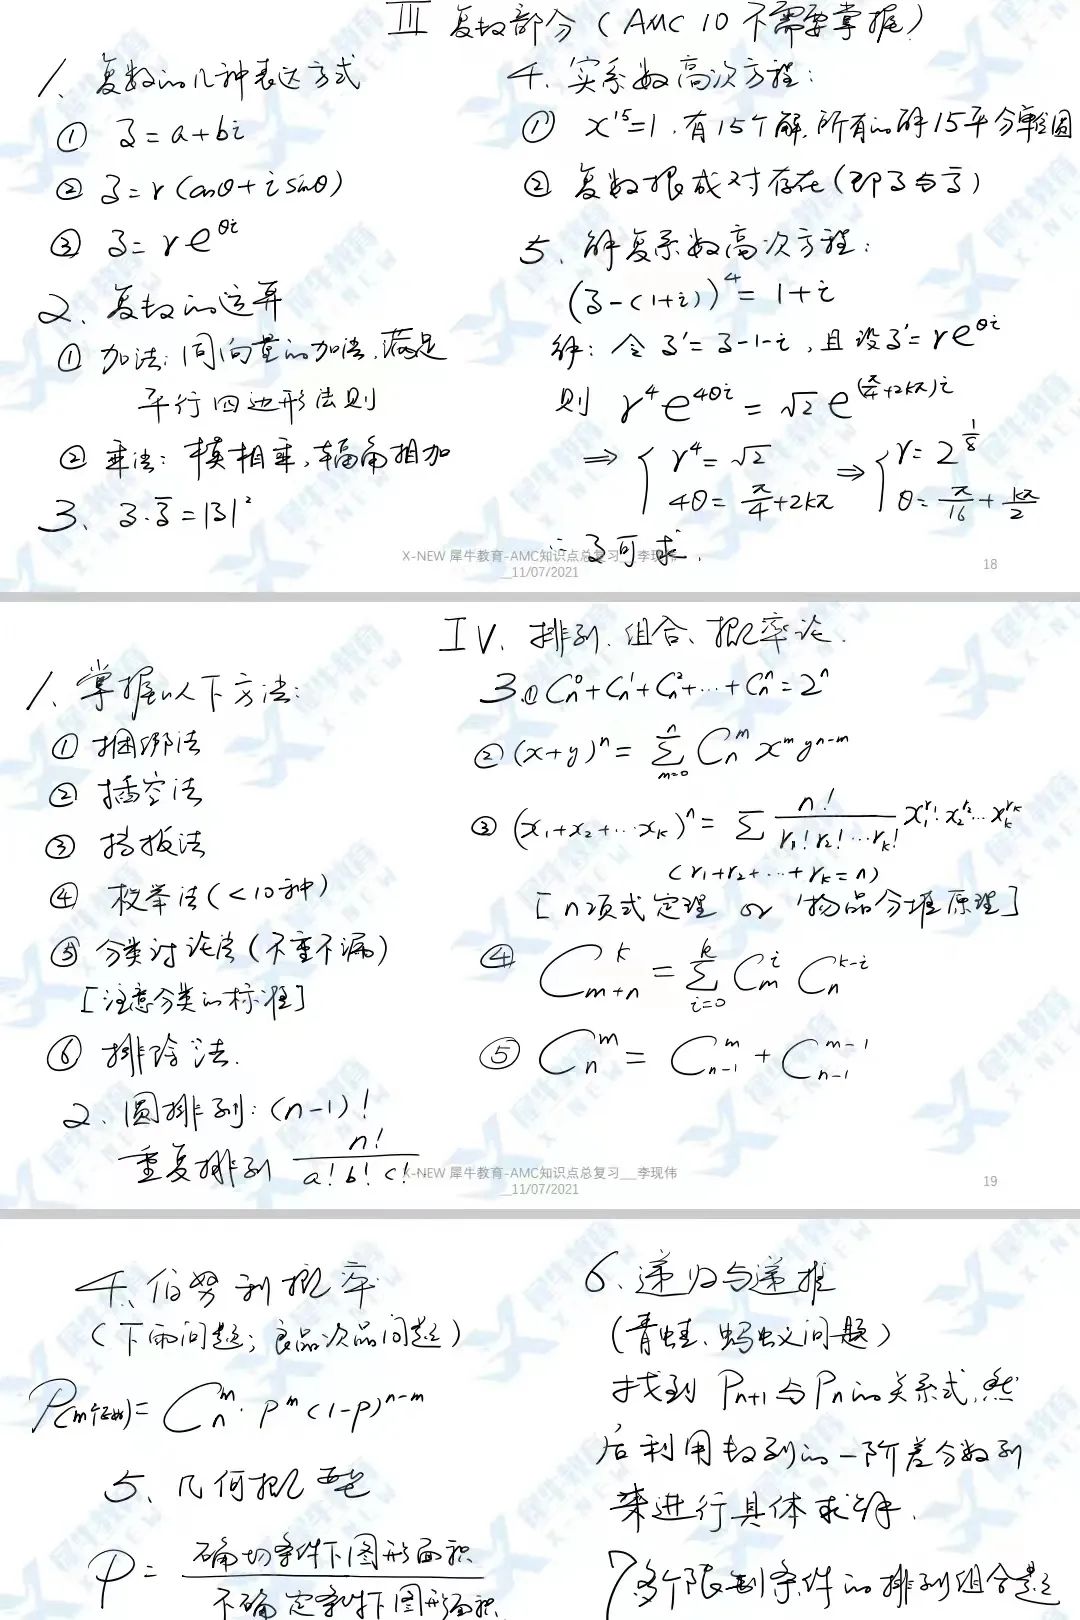 III 复数部分（AMC 10 不需要掌握）
1、复数的几种表达方式
① z=a+bi
② z=r(cosθ+i sinθ)
③ z=re^{θi}
2、复数的运算
① 加法：同向量的加法，满足
平行四边形法则
② 乘法：模相乘，辐角相加
3、z·z̄=|z|²
4. 实系数高次方程：
① x^{15}=1，有15个解，所有的解15平分单位圆
② 复数根成对存在（即z与z̄）
5、解复系数高次方程：
(z-(1+i))^4=1+i
解：令z'=z-1-i，且设z'=re^{θi}
则 r^4e^{4θi}=√2e^{(π/4+2kπ)i}
⇒ { r^4=√2 ⇒ { r=2^{1/8}
4θ=π/4+2kπ θ=π/16+kπ/2
∴z可求.
X-NEW 犀牛教育-AMC知识点总复习__李现伟
__11/07/2021
18
IV、排列、组合、概率论.
1、掌握以下方法：
① 捆绑法
② 插空法
③ 挡板法
④ 枚举法（<10种）
⑤ 分类讨论法（不重不漏）
[注意分类的标准]
⑥ 排除法.
2、圆排列：(n-1)!
重复排列 n!/(a!b!c!)
3.① C_n^0+C_n^1+C_n^2+…+C_n^n=2^n
② (x+y)^n=∑_{m=0}^{n} C_n^m x^m y^{n-m}
③ (x_1+x_2+…x_k)^n=∑ n!/(r_1!r_2!…r_k!) x_1^{r_1}·x_2^{r_2}…x_k^{r_k}
(r_1+r_2+…+r_k=n)
[n项式定理 or 物品分堆原理]
④ C_{m+n}^k=∑_{i=0}^{k} C_m^i C_n^{k-i}
⑤ C_n^m=C_{n-1}^m+C_{n-1}^{m-1}
X-NEW 犀牛教育-AMC知识点总复习__李现伟
__11/07/2021
19
4、伯努利概率
（下雨问题；良品次品问题）
P=C_n^m·p^m(1-p)^{n-m}
5、几何概型
P=确切条件下图形面积/不确定条件下图形面积
6、递归与递推
（青蛙、蚂蚁问题）
找到P_{n+1}与P_n的关系式，然
后利用数列的一阶差分数列
来进行具体求解.
7 多个限制条件的排列组合题